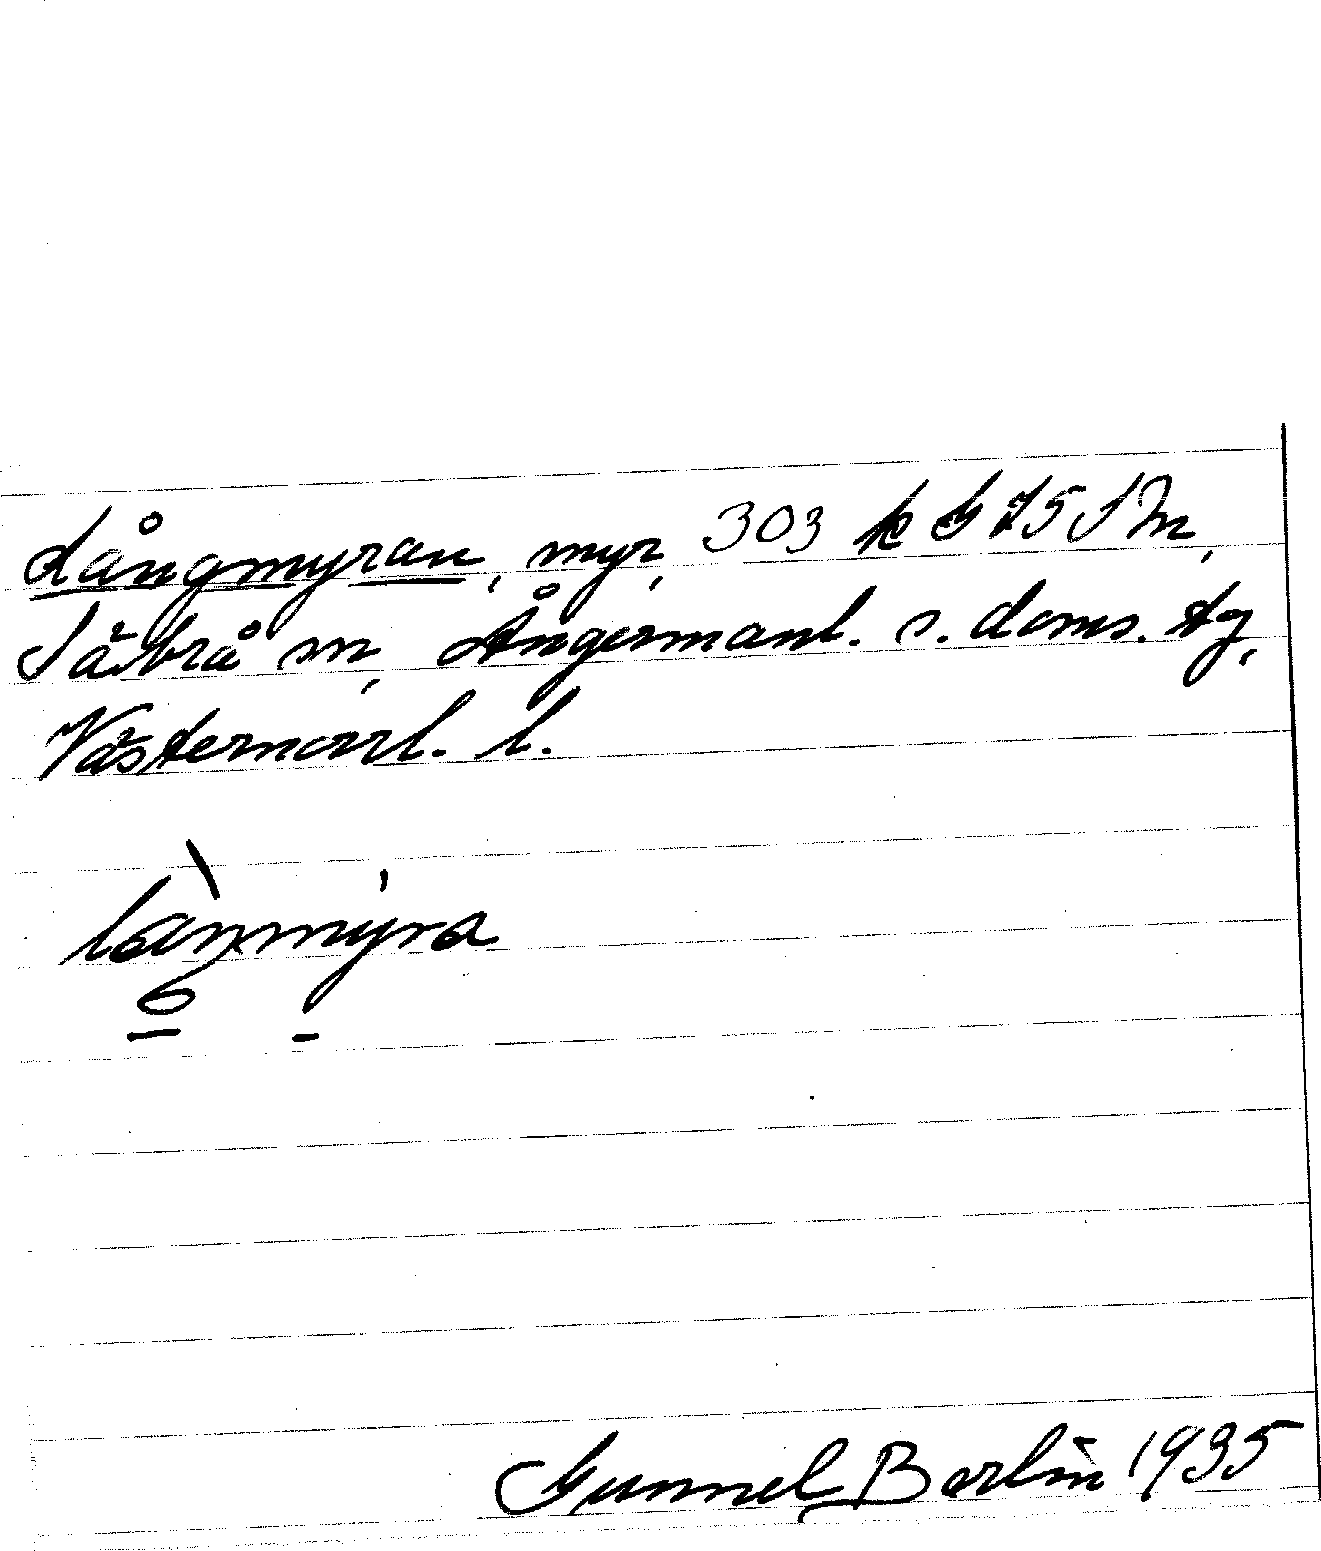 Långmyran, myr, 303 k G 75 S m,
Säbrå sn, Ångermanl. s. doms. tg,
Västernorrl. l.
Gunnel Berlin 1935